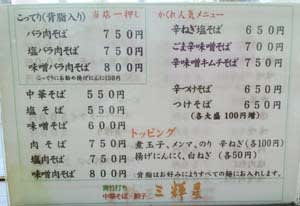 こってり(背脂入り) 当店一押し
バラ肉そば 750円
塩バラ肉そば 750円
味噌バラ肉そば 800円
中華そば 550円
塩そば 550円
味噌そば 600円
肉そば 750円
塩肉そば 750円
味噌肉そば 800円
かくれ人気メニュー
辛ねぎ塩そば 650円
ごま辛味噌そば 700円
辛味噌キムチそば 750円
辛つけそば 650円
つけそば 650円
(各大盛 100円増)
トッピング
煮玉子、メンマ、のり 辛ねぎ(各100円)
揚げにんにく、白ねぎ (各50円)
背脂はお好みによりすべての麺にお入れします。
青竹打ち
中華そば・餃子 三輝星